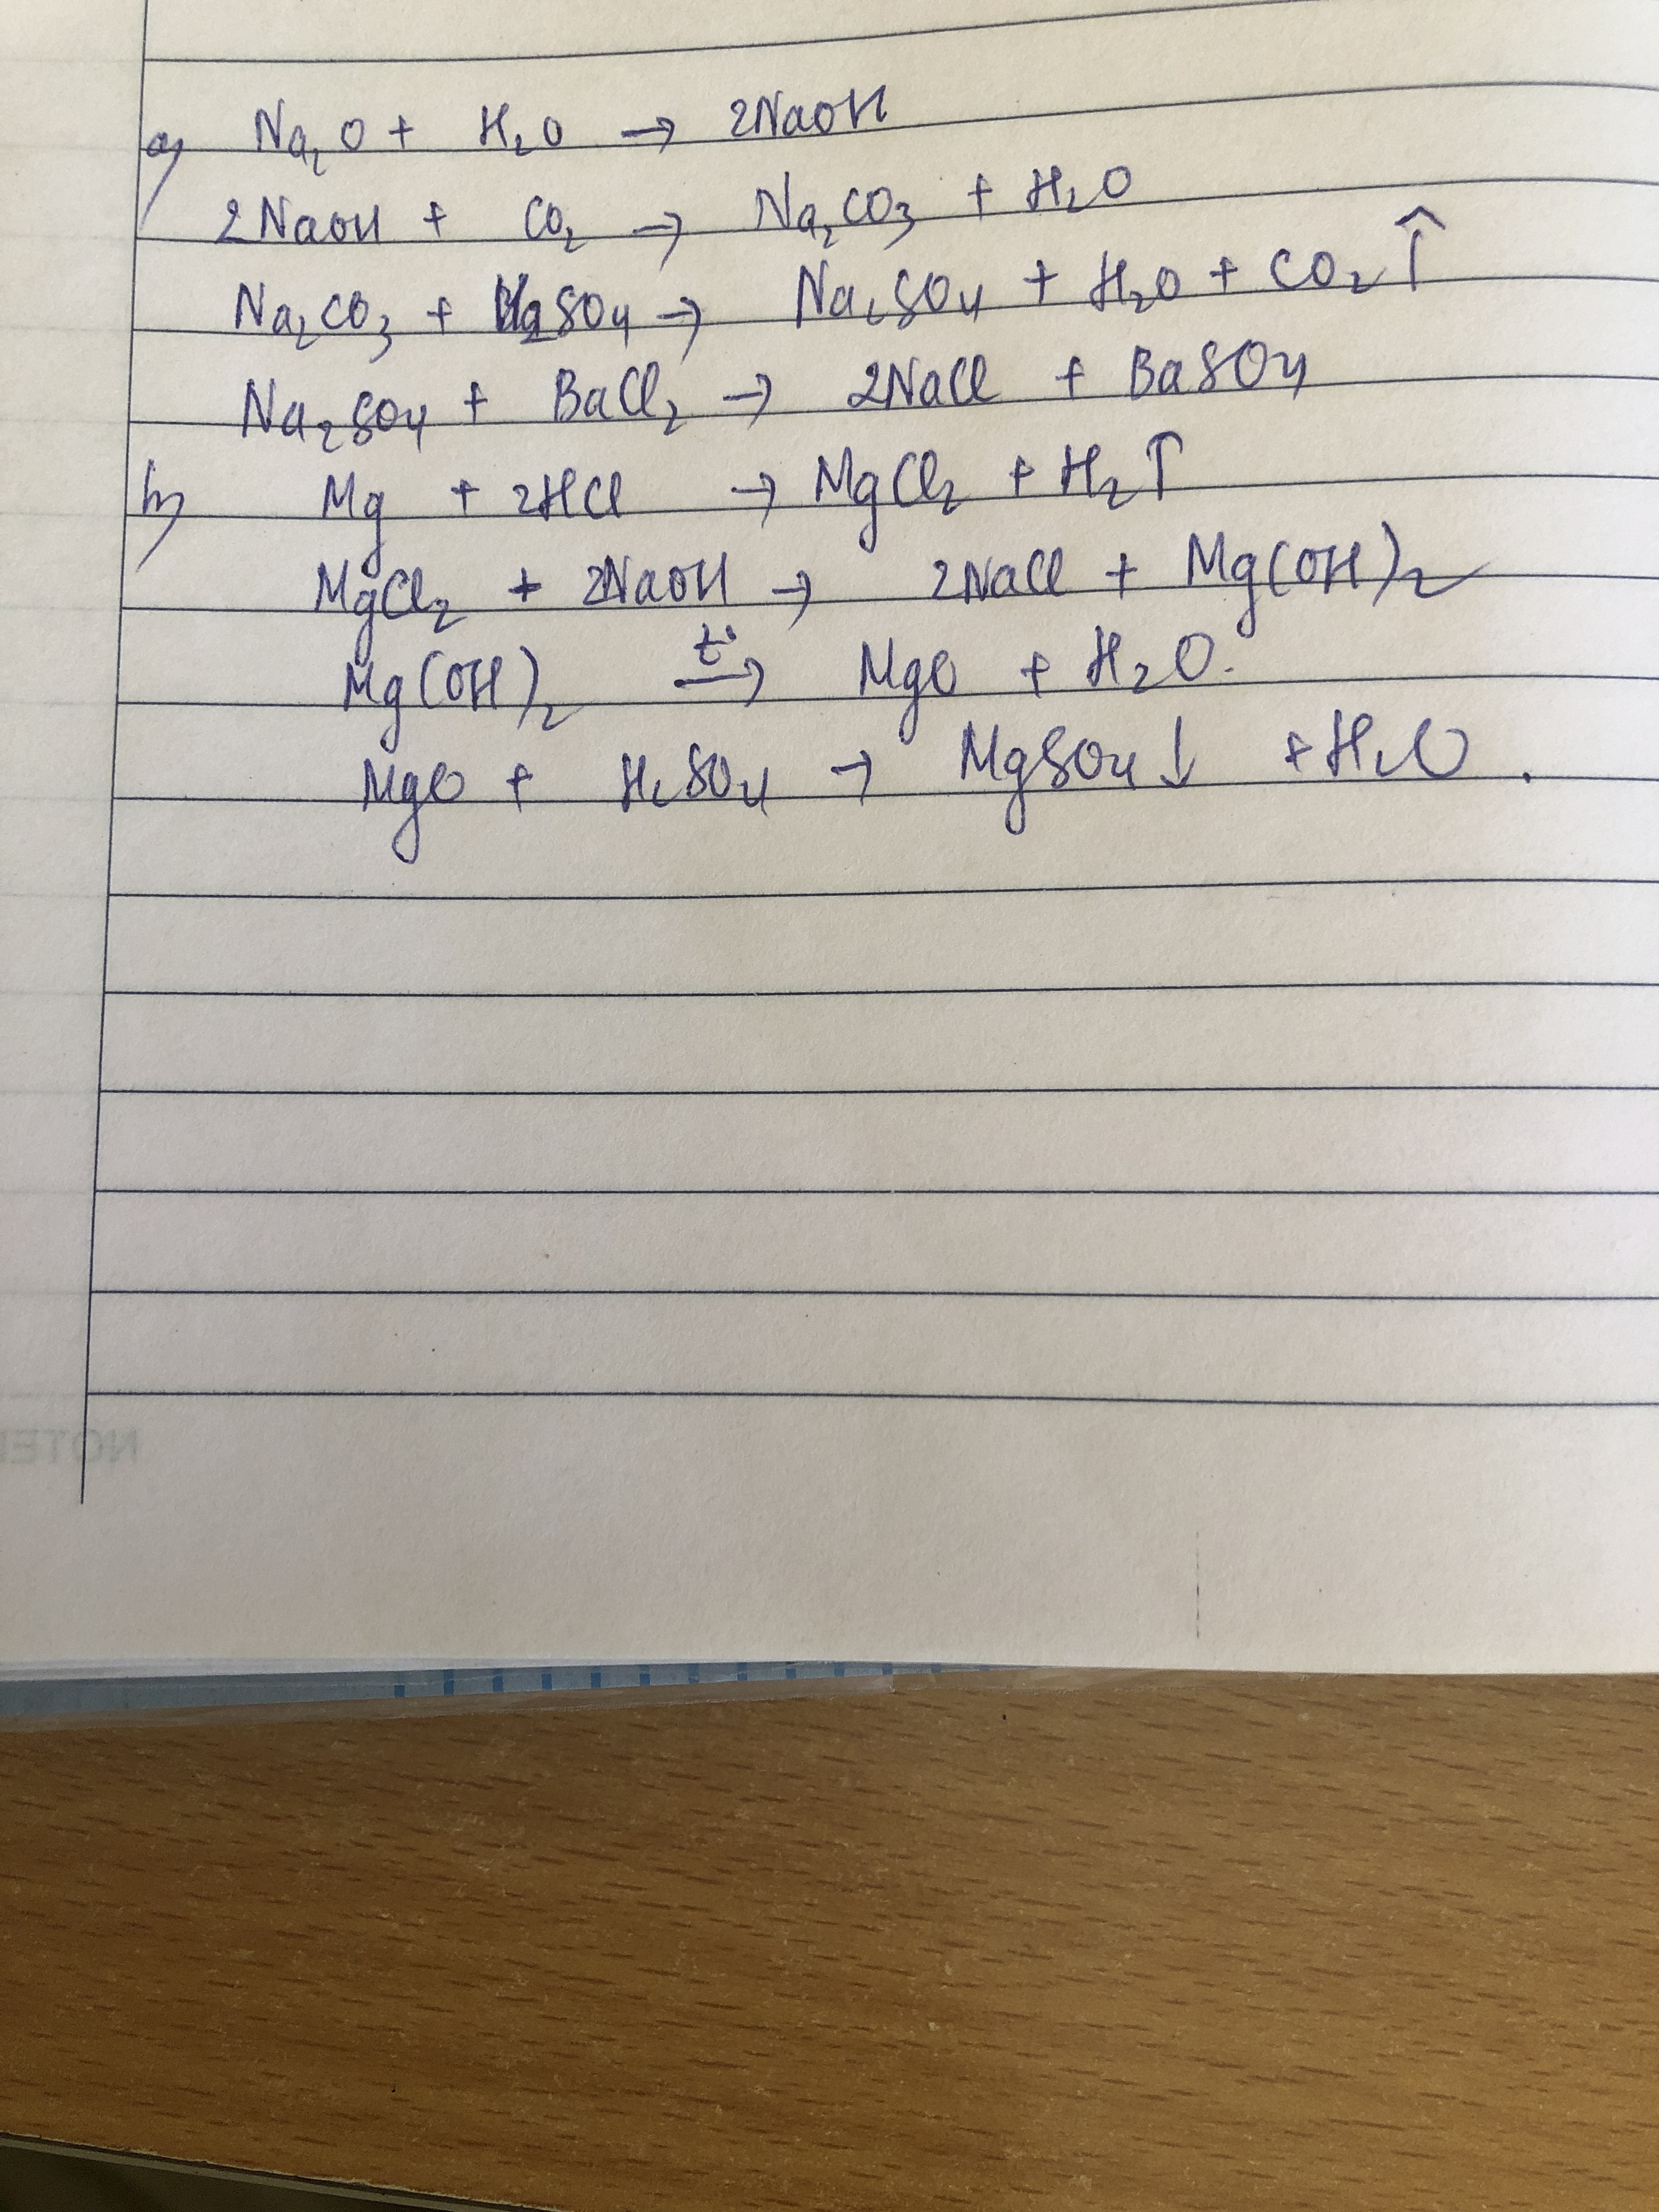 a) Na₂O + H₂O → 2NaOH
2NaOH + CO₂ → Na₂CO₃ + H₂O
Na₂CO₃ + H₂SO₄ → Na₂SO₄ + H₂O + CO₂↑
Na₂SO₄ + BaCl₂ → 2NaCl + BaSO₄
b) Mg + 2HCl → MgCl₂ + H₂↑
MgCl₂ + 2NaOH → 2NaCl + Mg(OH)₂
Mg(OH)₂ t° → MgO + H₂O.
MgO + H₂SO₄ → MgSO₄↓ + H₂O.